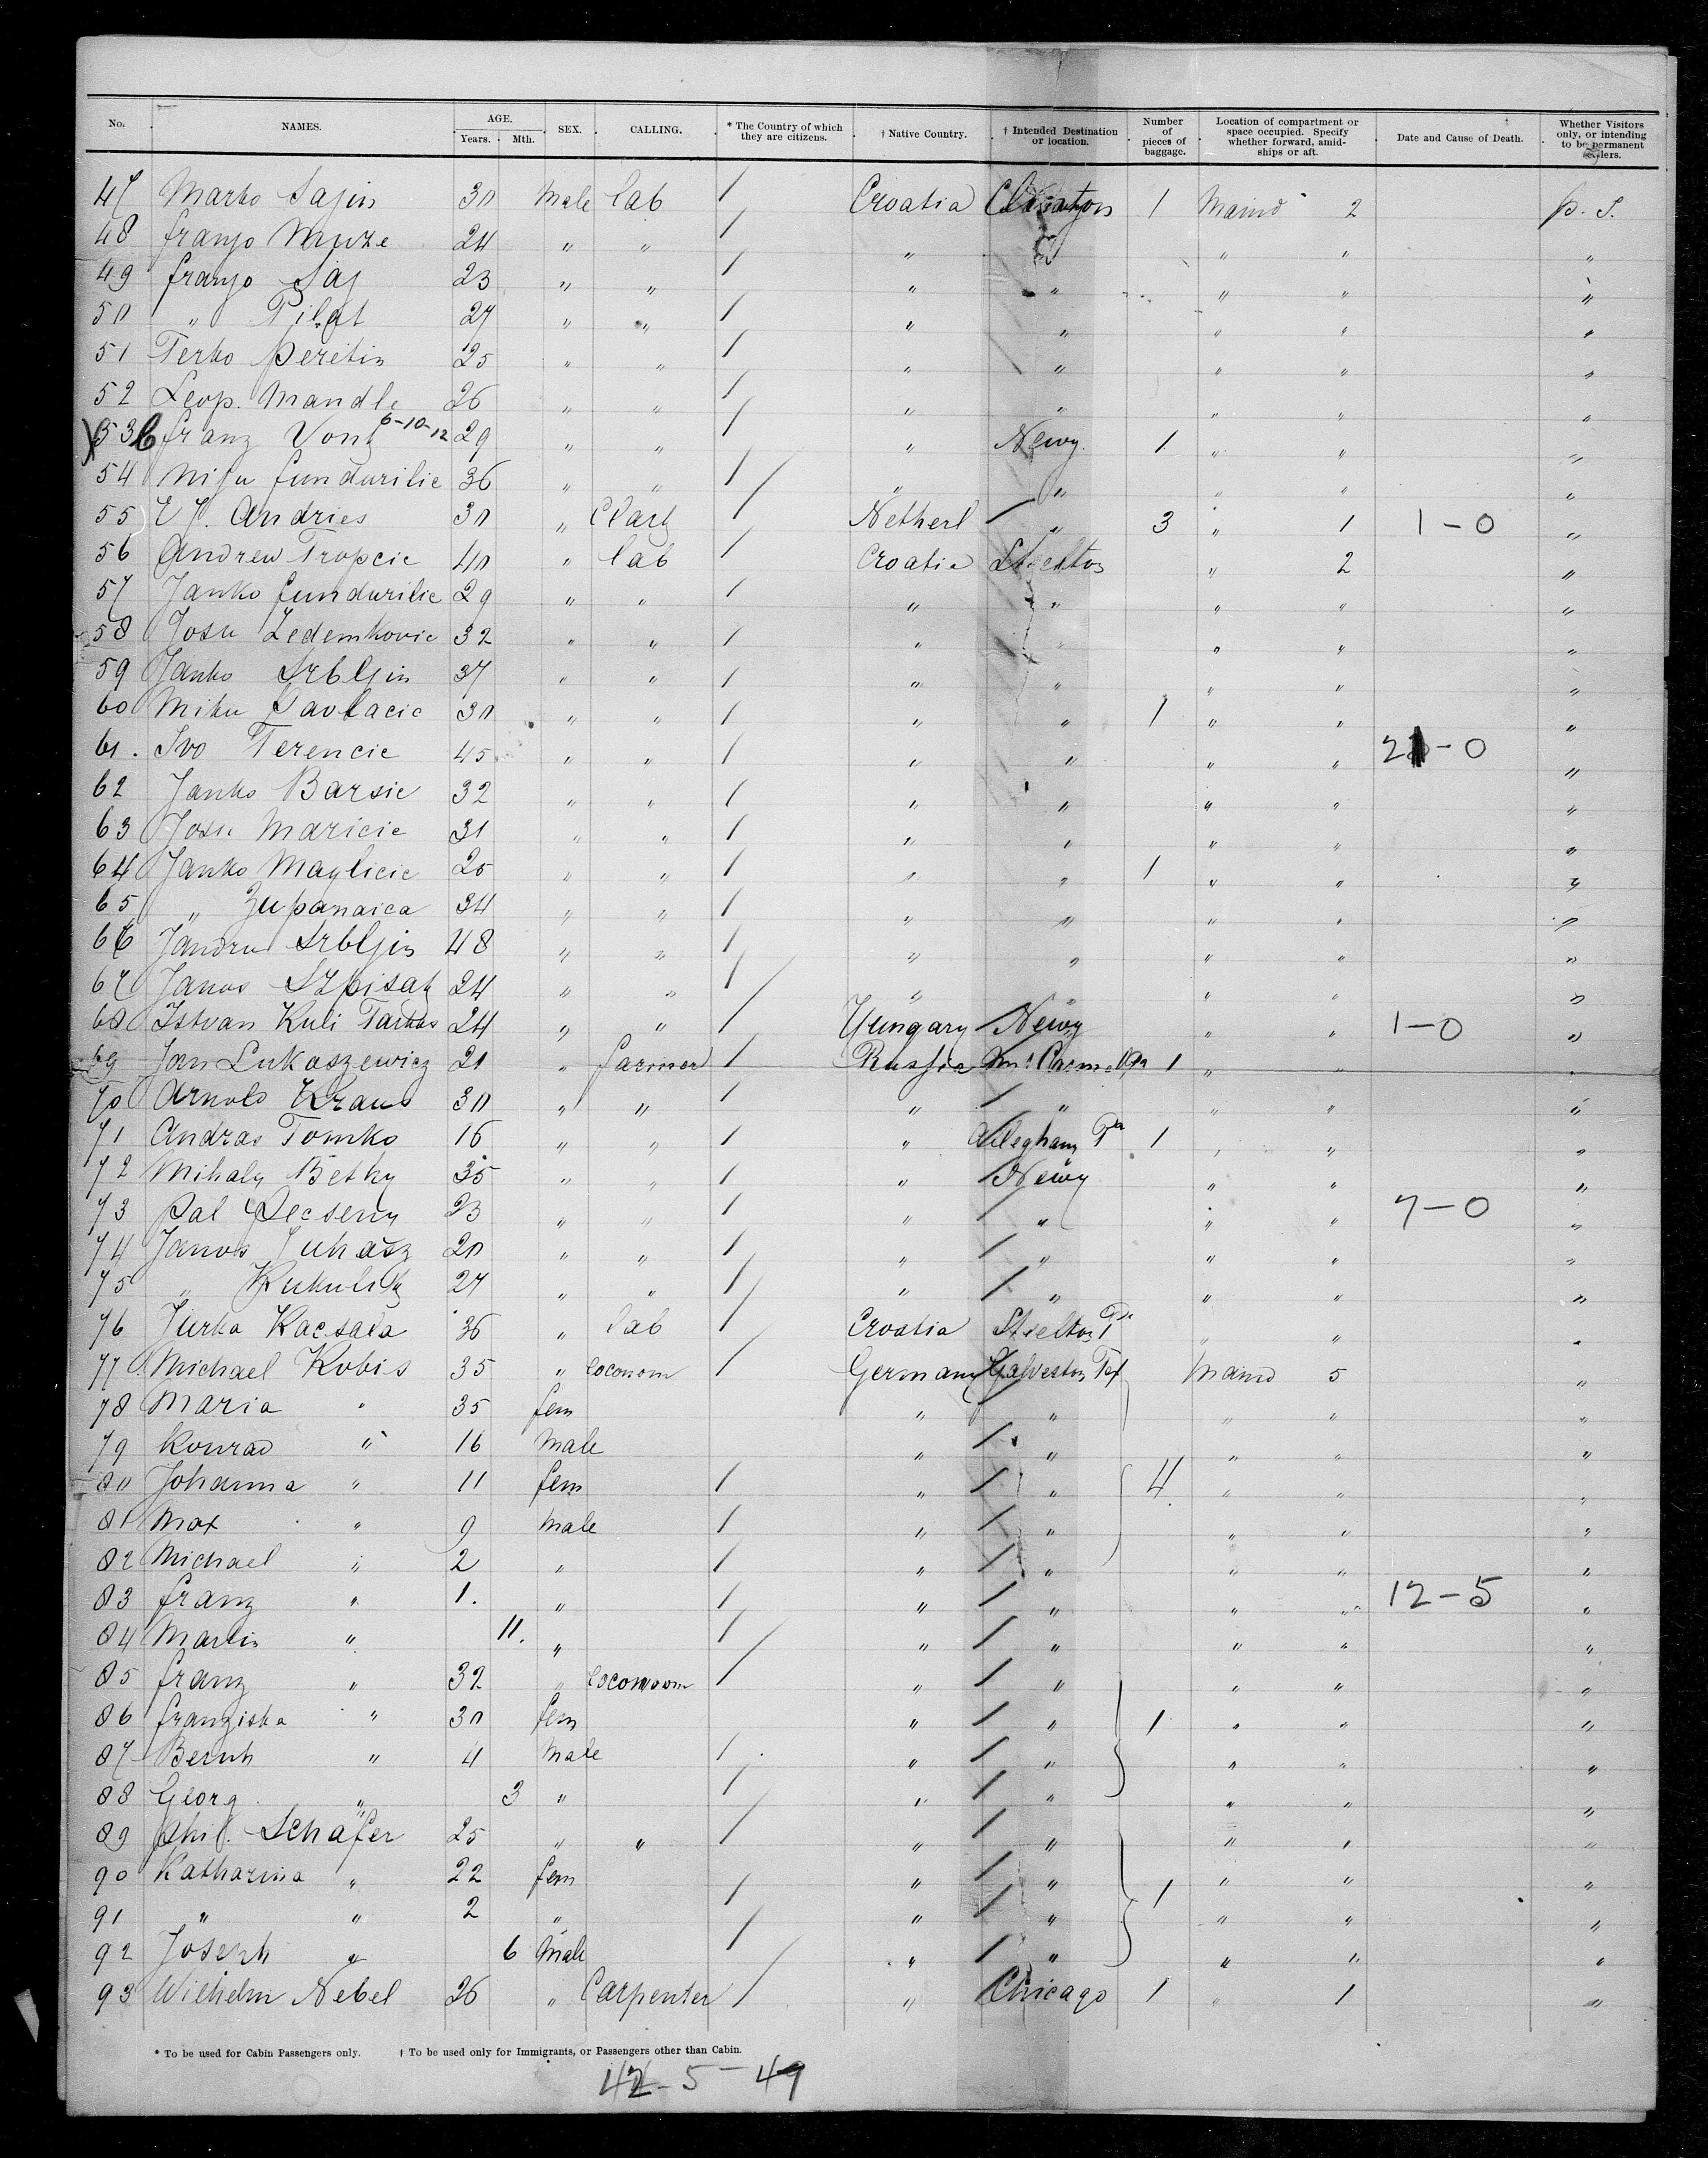 No. NAMES. AGE. Years. Mth. SEX. CALLING. * The Country of which they are citizens. † Native Country. † Intended Destination or location. Number of pieces of baggage. Location of compartment or space occupied. Specify whether forward, amidships or aft. Date and Cause of Death. Whether Visitors only, or intending to be permanent settlers.
47 Marko Sajin 30 Male lab / Croatia 1 Maind 2 p. S.
48 Franjo Muze 24 " " / " " " "
49 Franjo Saj 23 " " / " " " " "
50 " Pilat 27 " " / " " " " "
51 Terko Peretin 25 " " / " " " " "
52 Leop. Mandle 26 " " / " " " " "
53 Franz 6-10-12 29 " " / " Newy. 1 " " "
54 36 " " / " " " " "
55 Andries 30 " / Netherl " 3 " 1 1-0 "
56 Andrew Tropcic 40 " lab / Croatia Steelton " 2 "
57 Janko 29 " " / " " " " "
58 Josu Zedemkovic 32 " " / " " " " "
59 Janko Srbljin 37 " " / " " " " "
60 Miku Pavlacic 30 " " / " " 1 " " "
61. Ivo Terencic 45 " " / " " " " 21-0 "
62 Janko Barsic 32 " " / " " " " "
63 Josu Maricic 31 " " / " " " " "
64 Janko Maglicic 25 " " / " " 1 " " "
65 " Zupanaica 34 " " / " " " " "
66 Jandru Srbljin 48 " " / " " " " "
67 Janos 24 " " / " " " " "
68 Istvan Kuli 24 " " / Hungary Newy " " 1-0 "
69 Jan Lukaszewicz 21 " farmer / Russia Mt Carmel Pa 1 " "
70 Arnold Kraus 30 " " / " " " " "
71 Andras Tomko 16 " " / " Allegham Pa 1 " " "
72 Mihaly Betky 35 " " / " Newy " " "
73 Pal Pecseny 23 " " / " " " " 7-0 "
74 Janos Juhasz 20 " " / " " " " "
75 " 27 " " / " " " " "
76 Jurka Kacsala 36 " lab / Croatia Steelton Pa " " "
77 Michael Kobis 35 " oconom / Germany Galveston Tex Maind 5 "
78 Maria " 35 fem " " " " "
79 Konrad " 16 male " " " " "
80 Johanna " 11 fem / " " 4 " " "
81 Max " 9 male / " " " " "
82 Michael " 2 " / " " " " "
83 Franz " 1. " / " " " " 12-5 "
84 Martin " 11. " / " " " " "
85 Franz " 32 " oconom / " " " " "
86 Franziska " 30 fem " " 1 " " "
87 Bernh " 4 male / " " " " "
88 Georg " 3 " / " " " " "
89 Phil. Schäfer 25 " " / " " " " "
90 Katharina " 22 fem " " " " "
91 " " 2 " / " " 1 " " "
92 Joseph " 6 Male / " " " " "
93 Wilhelm Nebel 26 " Carpenter / " Chicago 1 " 1 "
* To be used for Cabin Passengers only. † To be used only for Immigrants, or Passengers other than Cabin.
42-5-49